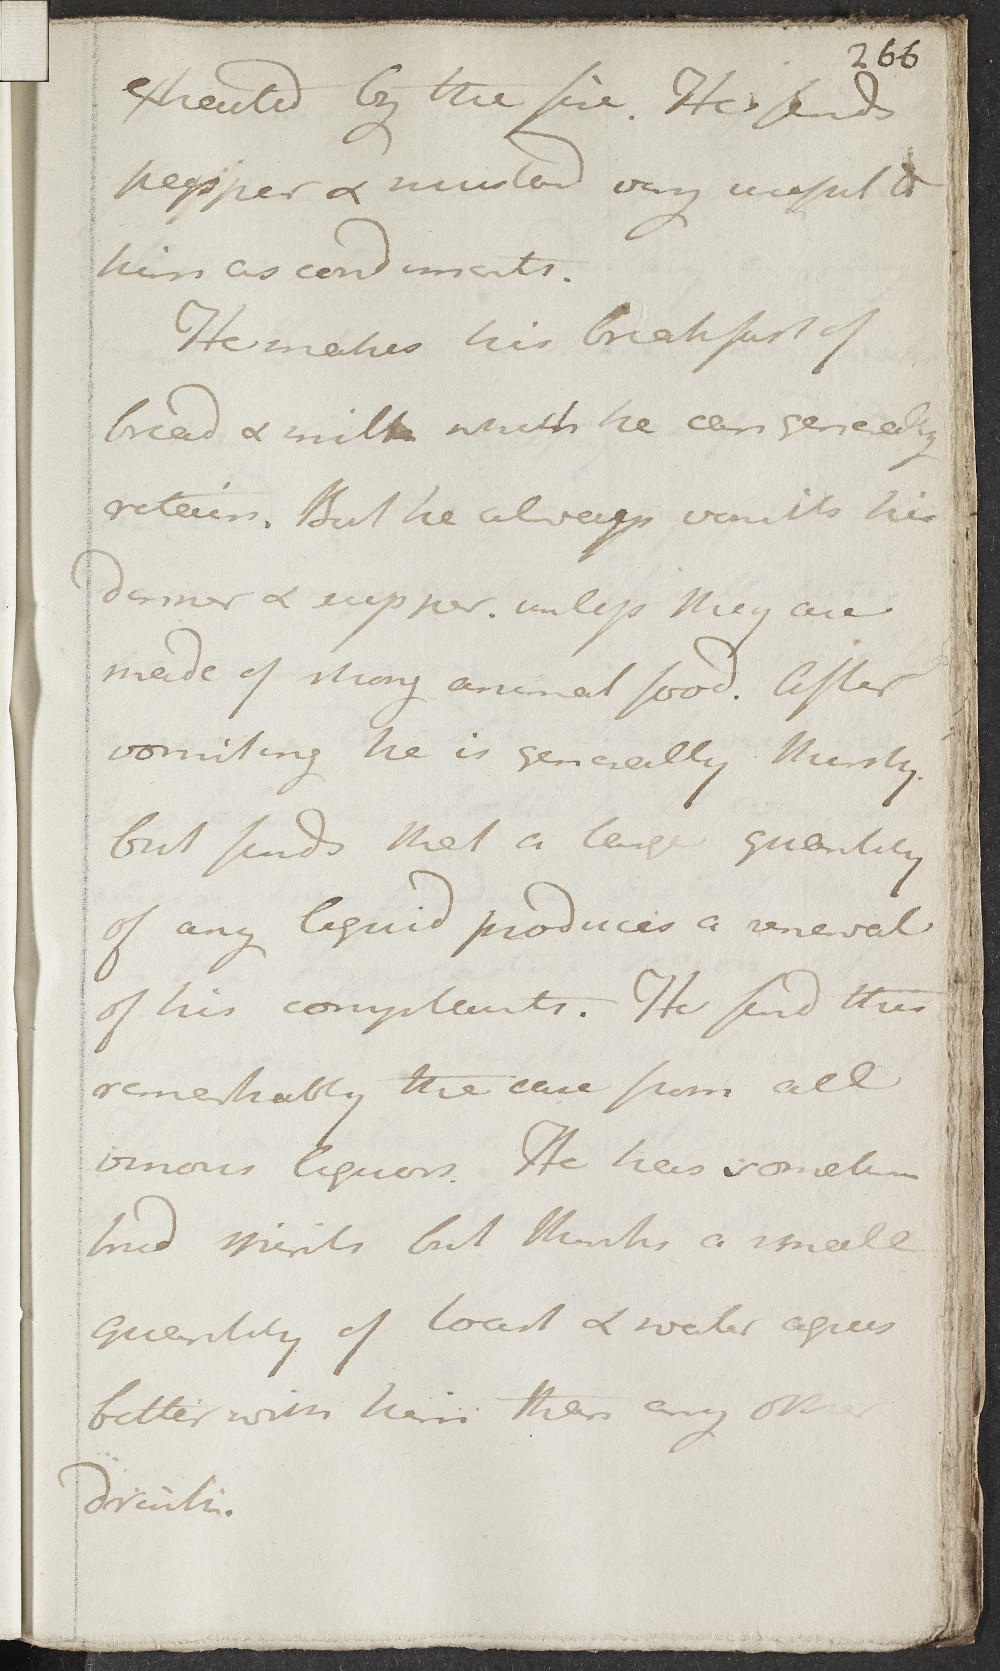 266
by the fire. He finds
pepper & mustard very useful to
him as condiments.
He makes his breakfast of
bread & milk which he can generally
retain. But he always vomits his
dinner & supper. unless they are
made of strong animal food. After
vomiting he is generally thirsty.
but finds that a large quantity
of any liquid produces a renewal
of his complaints. He find this
remarkably the case from all
vinous liquors. He has sometim
tried spirits but thinks a small
quantity of toast & water agrees
better with him than any other
drink.